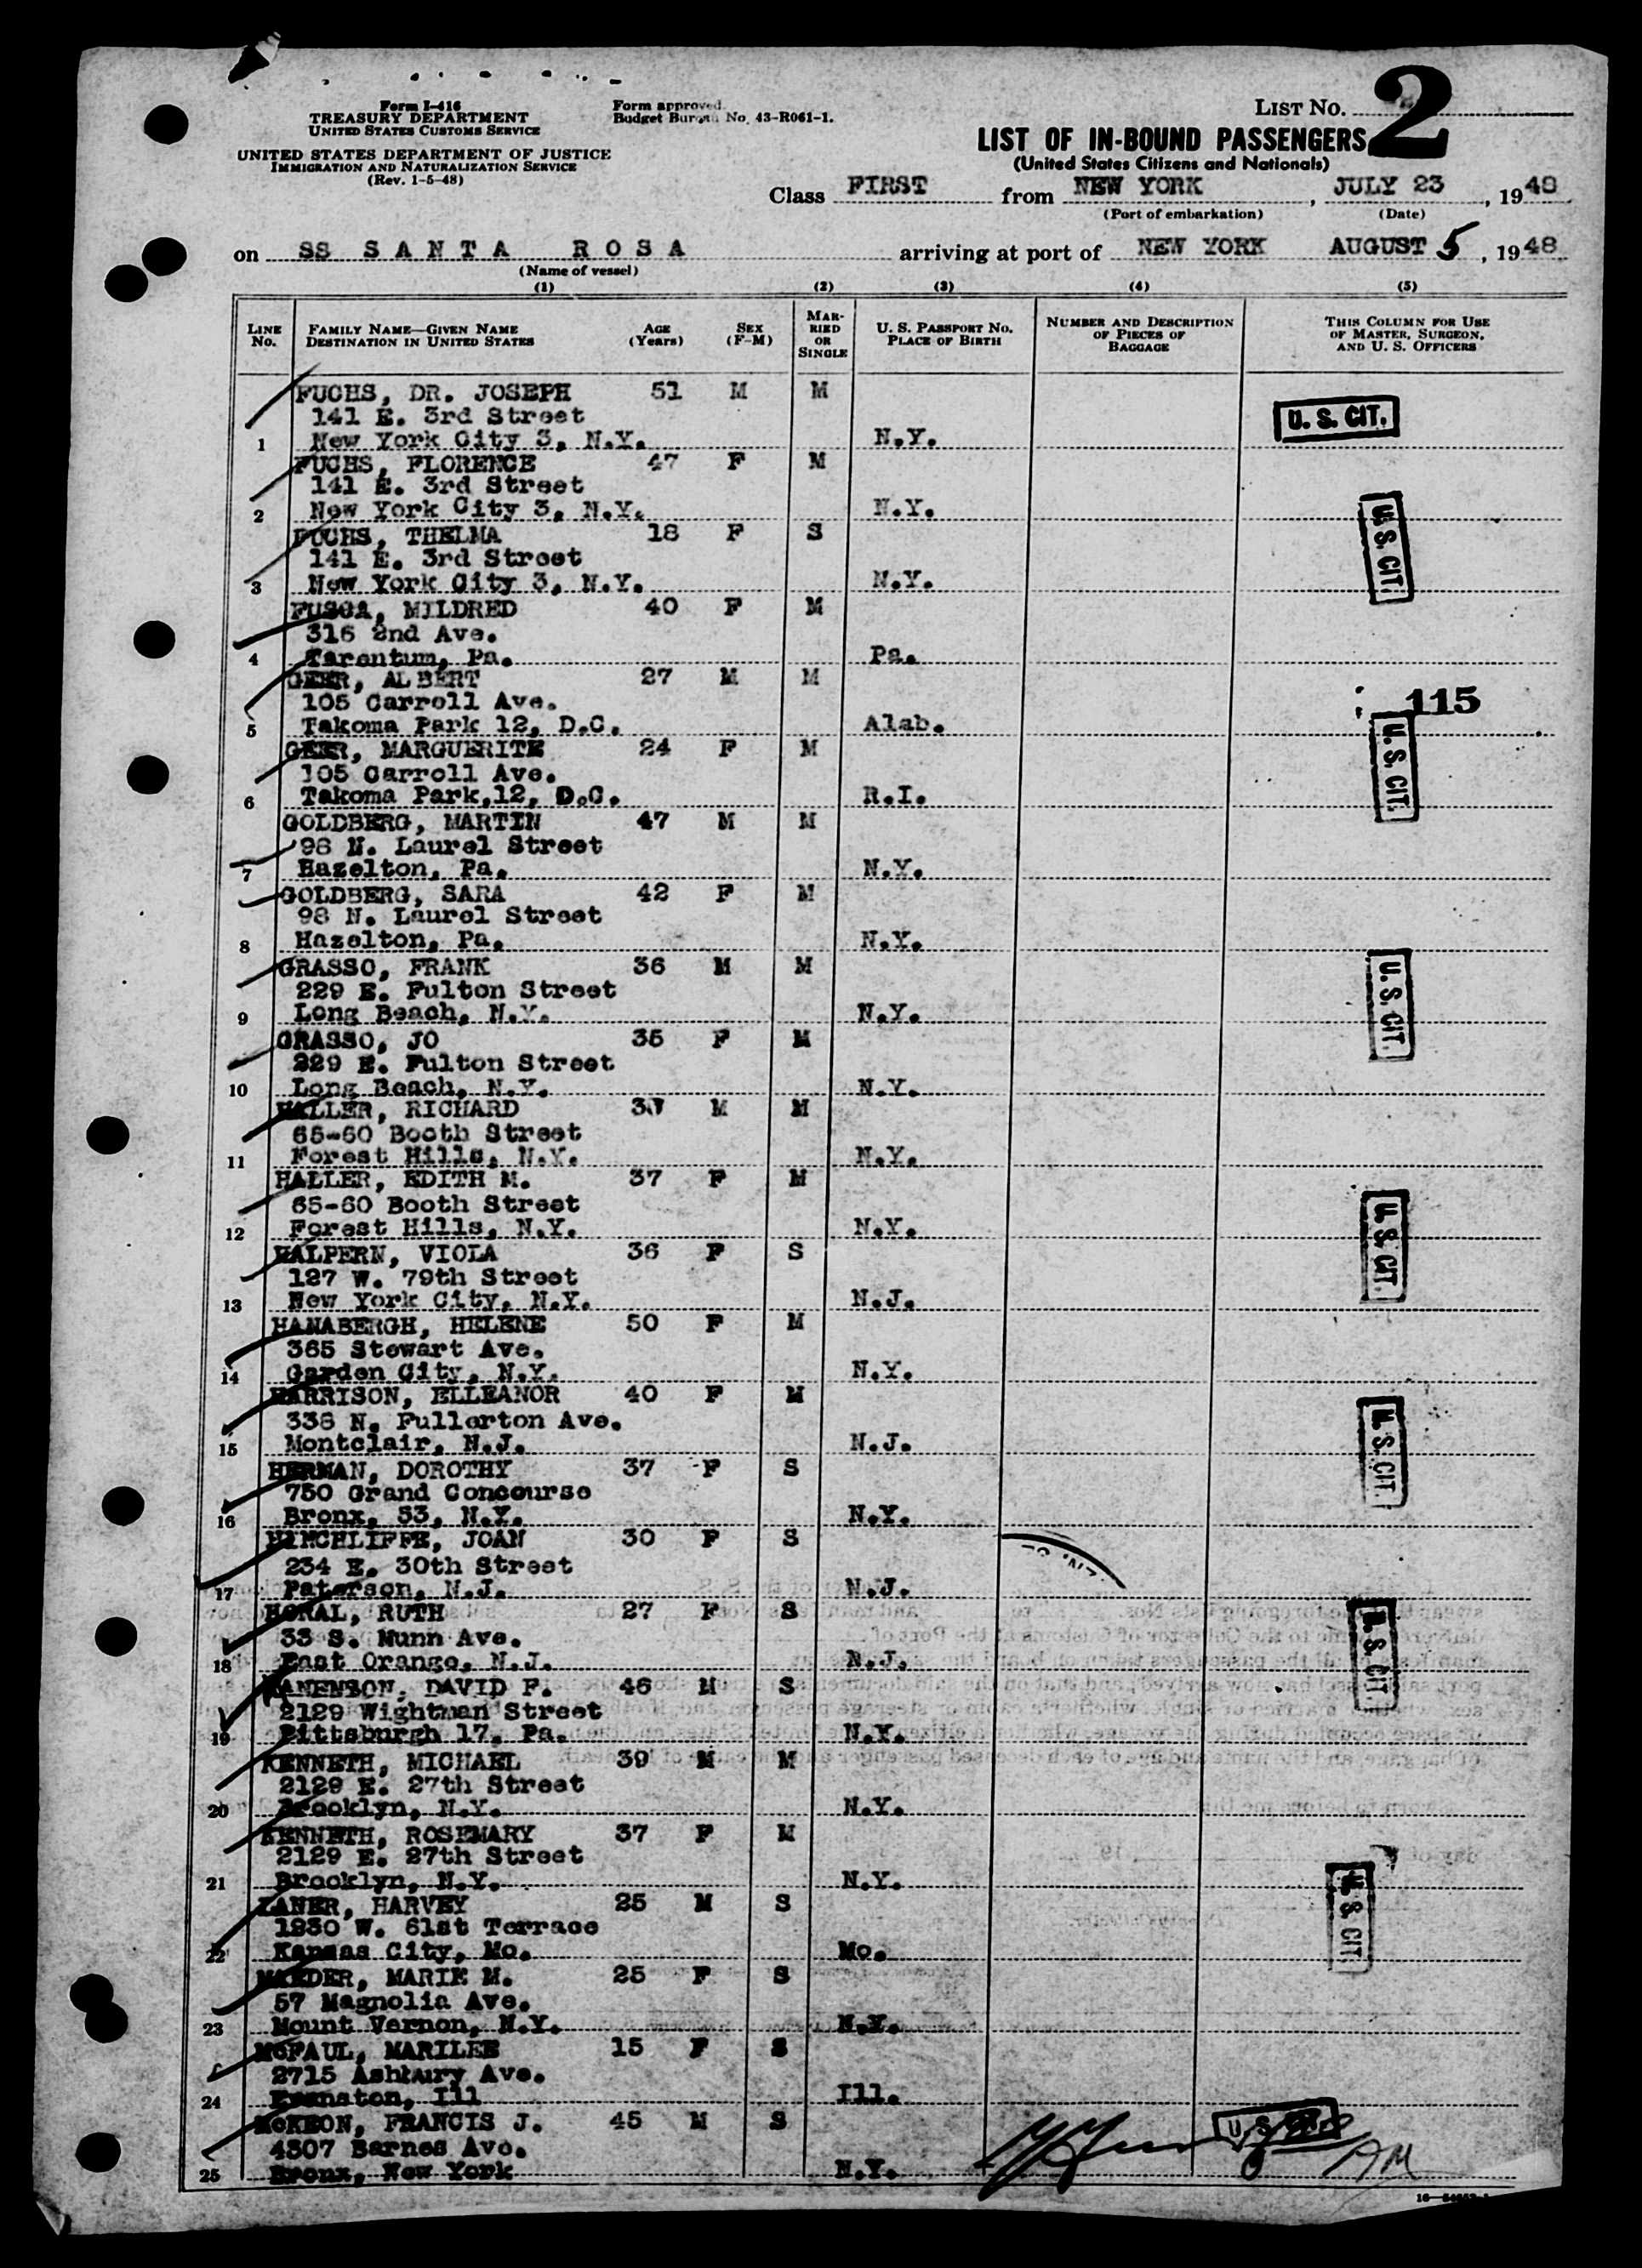 Form I-416
TREASURY DEPARTMENT
UNITED STATES CUSTOMS SERVICE
UNITED STATES DEPARTMENT OF JUSTICE
IMMIGRATION AND NATURALIZATION SERVICE
(Rev. 1-5-48)
Form approved.
Budget Bureau No. 43-R061-1.
LIST NO. 2
LIST OF IN-BOUND PASSENGERS
(United States Citizens and Nationals)
Class FIRST from NEW YORK, JULY 23, 1948
(Port of embarkation) (Date)
on SS SANTA ROSA arriving at port of NEW YORK AUGUST 5, 1948
(Name of vessel)
(1) (2) (3) (4) (5)
LINE NO. FAMILY NAME—GIVEN NAME DESTINATION IN UNITED STATES AGE (Years) SEX (F-M) MARRIED OR SINGLE U. S. PASSPORT NO. PLACE OF BIRTH NUMBER AND DESCRIPTION OF PIECES OF BAGGAGE THIS COLUMN FOR USE OF MASTER, SURGEON, AND U. S. OFFICERS
FUCHS, DR. JOSEPH 51 M M
141 E. 3rd Street U. S. CIT.
1 New York City 3, N.Y. N.Y.
FUCHS, FLORENCE 47 F M
141 E. 3rd Street
2 New York City 3, N.Y. N.Y.
FUCHS, THELMA 18 F S U. S. CIT.
141 E. 3rd Street
3 New York City 3, N.Y. N.Y.
FUSCA, MILDRED 40 F M
316 2nd Ave.
4 Tarentum, Pa. Pa.
GEER, ALBERT 27 M M
105 Carroll Ave. 115
5 Takoma Park 12, D.C. Alab.
GEER, MARGUERITE 24 F M U. S. CIT.
105 Carroll Ave.
6 Takoma Park,12, D.C. R.I.
GOLDBERG, MARTIN 47 M M
98 N. Laurel Street
7 Hazelton, Pa. N.Y.
GOLDBERG, SARA 42 F M
98 N. Laurel Street
8 Hazelton, Pa. N.Y.
GRASSO, FRANK 36 M M U. S. CIT.
229 E. Fulton Street
9 Long Beach, N.Y. N.Y.
GRASSO, JO 35 F M
229 E. Fulton Street
10 Long Beach, N.Y. N.Y.
HALLER, RICHARD M M
65-60 Booth Street
11 Forest Hills, N.Y. N.Y.
HALLER, EDITH M. 37 F M
65-60 Booth Street
12 Forest Hills, N.Y. N.Y.
HALPERN, VIOLA 36 F S U. S. CIT.
127 W. 79th Street
13 New York City, N.Y. N.J.
HANABERGH, HELENE 50 F M
365 Stewart Ave.
14 Garden City, N.Y. N.Y.
HARRISON, ELLEANOR 40 F M
336 N. Fullerton Ave. U. S. CIT.
15 Montclair, N.J. N.J.
HERMAN, DOROTHY 37 F S
750 Grand Concourse
16 Bronx, 53, N.Y. N.Y.
HINCHLIFFE, JOAN 30 F S
234 E. 30th Street
17 Paterson, N.J. N.J.
HORAL, RUTH 27 F S
33 S. Munn Ave. U. S. CIT.
18 East Orange, N.J. N.J.
KANENSON, DAVID F. 46 M S
2129 Wightman Street
19 Pittsburgh 17, Pa. N.Y.
KENNETH, MICHAEL 39 M M
2129 E. 27th Street
20 Brooklyn, N.Y. N.Y.
KENNETH, ROSEMARY 37 F M
2129 E. 27th Street
21 Brooklyn, N.Y. N.Y.
LANER, HARVEY 25 M S U. S. CIT.
1230 W. 61st Terrace
22 Kansas City, Mo. Mo.
MAEDER, MARIE M. 25 F S
57 Magnolia Ave.
23 Mount Vernon, N.Y. N.Y.
McPAUL, MARILEE 15 F S
2715 Ashbury Ave.
24 Evanston, Ill Ill.
McKEON, FRANCIS J. 45 M S
4307 Barnes Ave.
25 Bronx, New York N.Y.